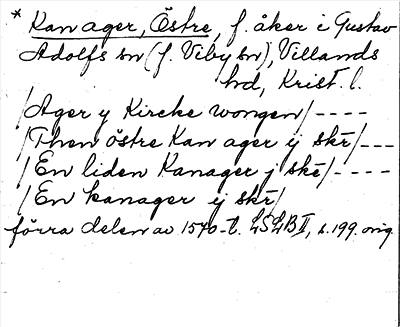 * Kanager, Östre, f. åker i Gustav
Adolfs sn (f. Viby sn), Villands
hd, Krist. l.
/Ager y Kircke wongen/----
/Then östre Kan ager ij skr̄/---
/En liden Kanager j skē/----
/En kanager ij skr̄/
förra delen av 1570-t. LSLB II, s. 199. orig.